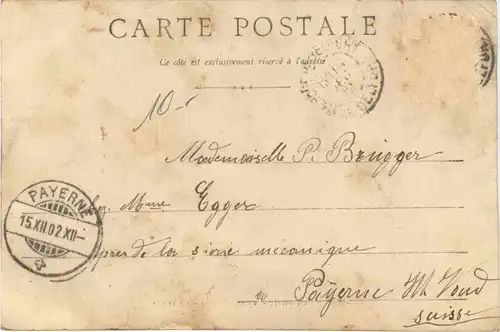 CARTE POSTALE
Ce côté est exclusivement réservé à l'adresse
10-
Mademoiselle P. Brügger
Mme Egger
près de la sierie mécanique
à Payerne Vaud
suisse
PAYERNE
15.XII.02.XII-